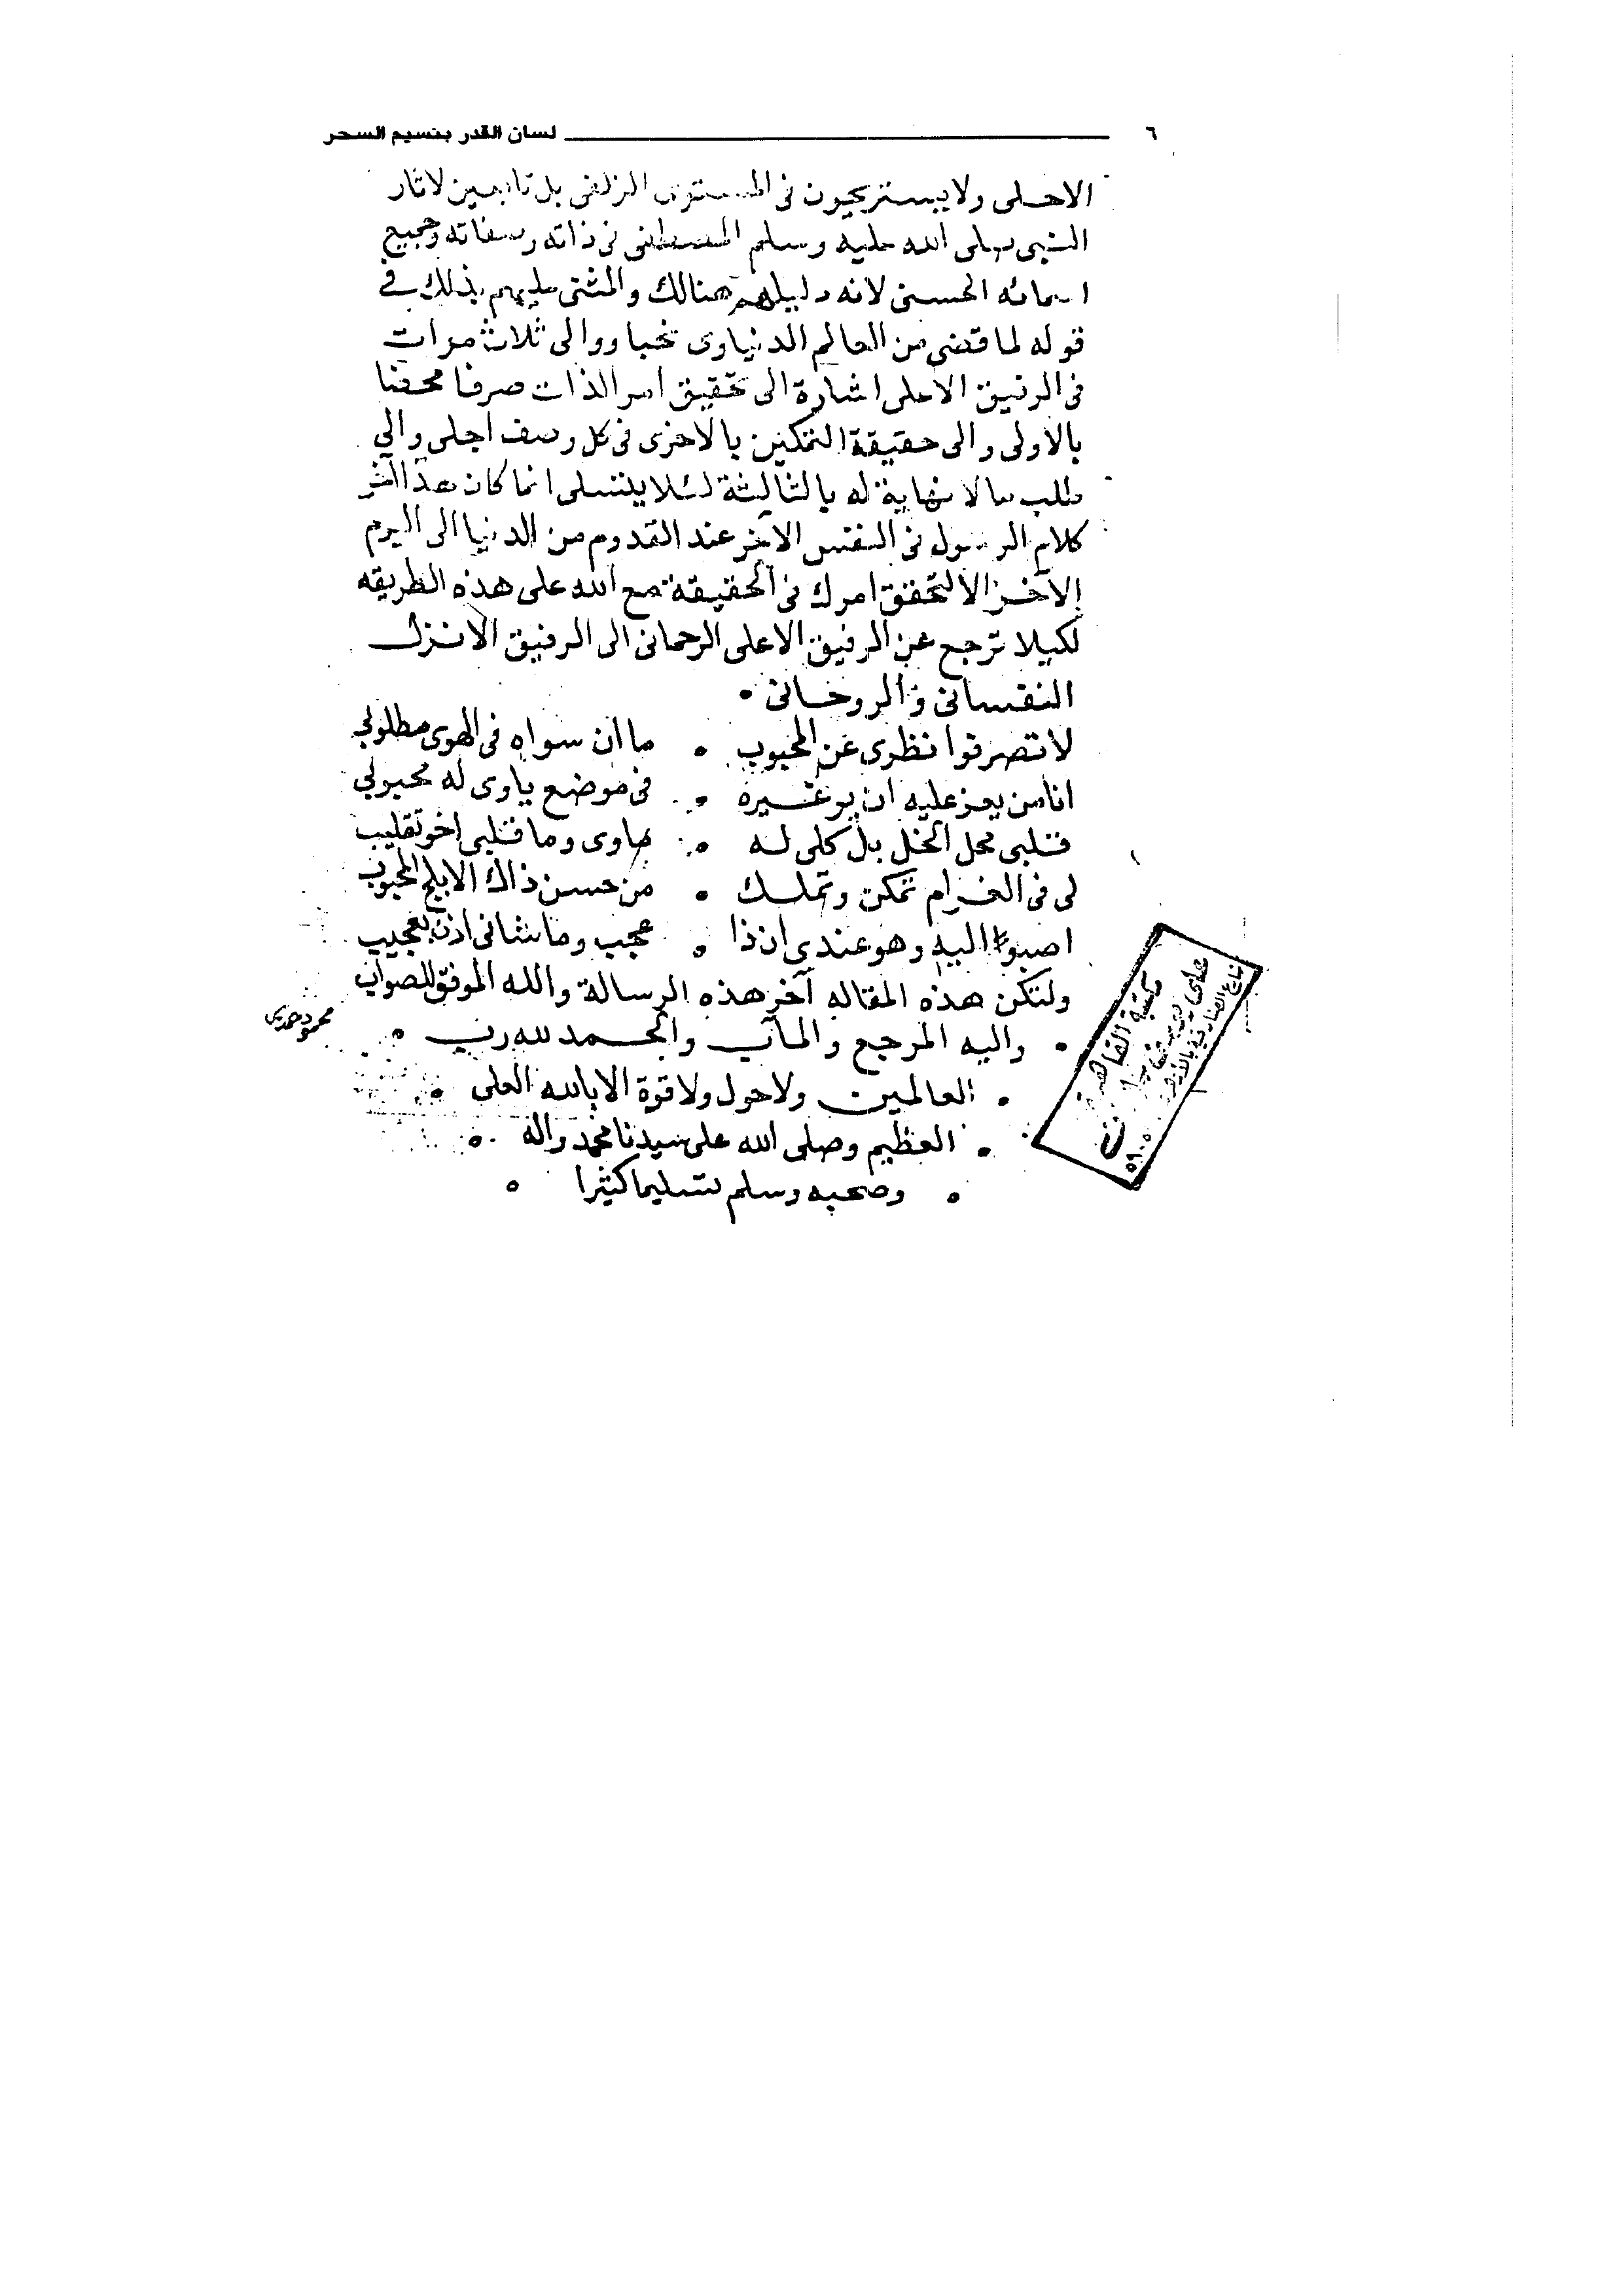 ٦ لسان القدر بنسيم السحر
الاحلى ولا يستريحون فى المستوى الزلفى بل تابعين لاثار
النبى صلى الله عليه وسلم المصطفى فى ذاته وصفاته وجميع
اسمائه الحسنى لانه دليلهم هنالك والمثنى عليهم بذلك فى
قوله لما قضى من العالم الدنياوى نحبا ووالى ثلاث مرات
فى الرفيق الاعلى اشارة الى تحقيق امر الذات صرفا محضا
بالاولى والى حقيقة التمكين بالاخرى فى كل وصف اجلى والى
طلب مالا نهاية له بالثالثة لئلا يتسلى انما كان هذا آخر
كلام الرسول فى النفس الآخر عند القدوم من الدنيا الى اليوم
الآخر الا لتحقق امرك فى الحقيقة مع الله على هذه الطريقه
لكيلا ترجع عن الرفيق الاعلى الرحمانى الى الرفيق الانزل
النفسانى والروحانى •
لا تصرفوا نظرى عن المحبوب • ما ان سواه فى الهوى مطلوبى
انا من يعز عليه ان يرو غيره • فى موضع ياوى له محبوبى
قلبى محل الخل بل كلى له • ماوى وما قلبى اخو تقليب
لى فى الغرام تمكن وتملك • من حسن ذاك الابلج المحبوب
اصبوا اليه وهو عندى ان ذا • عجب وما شانى اذن بعجيب
ولتكن هذه المقاله آخر هذه الرسالة والله الموفق للصواب
• واليه المرجع والمآب والحمد لله رب •
• العالمين ولا حول ولا قوة الا بالله العلى •
• العظيم وصلى الله على سيدنا محمد واله •
• وصحبه وسلم تسليما كثيرا •
محمود حمدى
مكتبة القاهرة
على يوسف سليمان
شارع الصنادقية بالأزهر